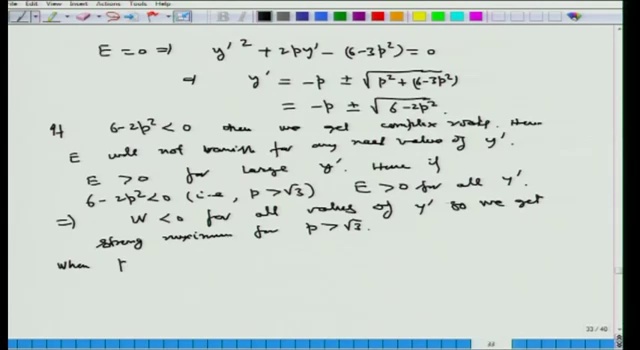 Edit View Insert Actions Tools Help
E = 0 ⇒ y'² + 2py' - (6-3p²) = 0
⇒ y' = -p ± √(p² + (6-3p²))
= -p ± √(6-2p²).
If 6-2p² < 0 then we get complex roots. Hence
E will not vanish for any real value of y'.
E > 0 for large y'. Hence if
6-2p² < 0 (i.e., p > √3) E > 0 for all y'.
⇒ W < 0 for all values of y' so we get
strong maximum for p > √3.
When p
33 / 40
33